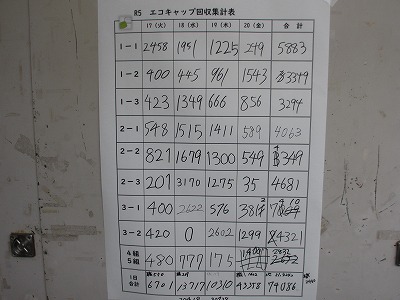 R5 エコキャップ回収集計表
17(火) 18(水) 19(木) 20(金) 合計
1-1 2458 1951 1225 249 5883
1-2 400 445 961 1543 3349
1-3 423 1349 666 856 3294
2-1 548 1515 1411 589 4063
2-2 821 1679 1300 549 4349
2-3 201 3170 1275 35 4681
3-1 400 2622 576
3-2 420 0 2602 1299 4321
4組
5組 480 777 175
1日
合計 6701 13717 10310 43358 74086